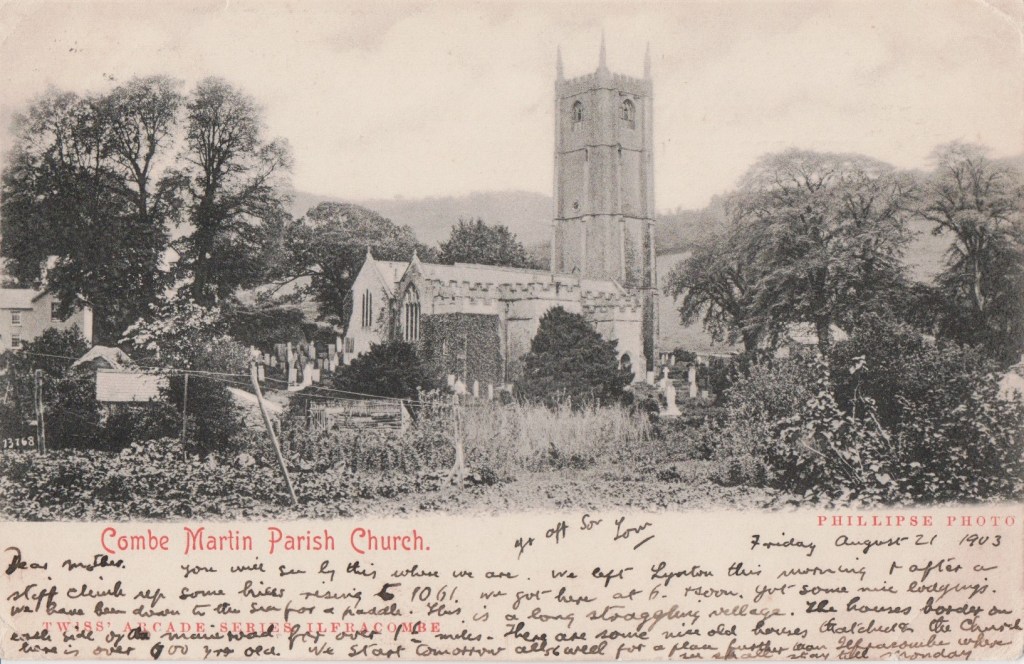 73768
Combe Martin Parish Church.
PHILLIPSE PHOTO
yr aff Son
Friday August 21 1903
Dear Mother. You will see by this where we are. We left Lynton this morning & after a
stiff climb up some hills rising to 1061. we got here at 6. Got some nice lodgings.
We have been down to the sea for a paddle. This is a long straggling village. The houses border on
TWISS' ARCADE SERIES ILFRACOMBE
each side of the main road for over 1½ miles. There are some nice old houses thatched & the Church
here is over 600 yrs old. We start tomorrow all well for a place further than Ilfracombe where
we shall stay till Monday